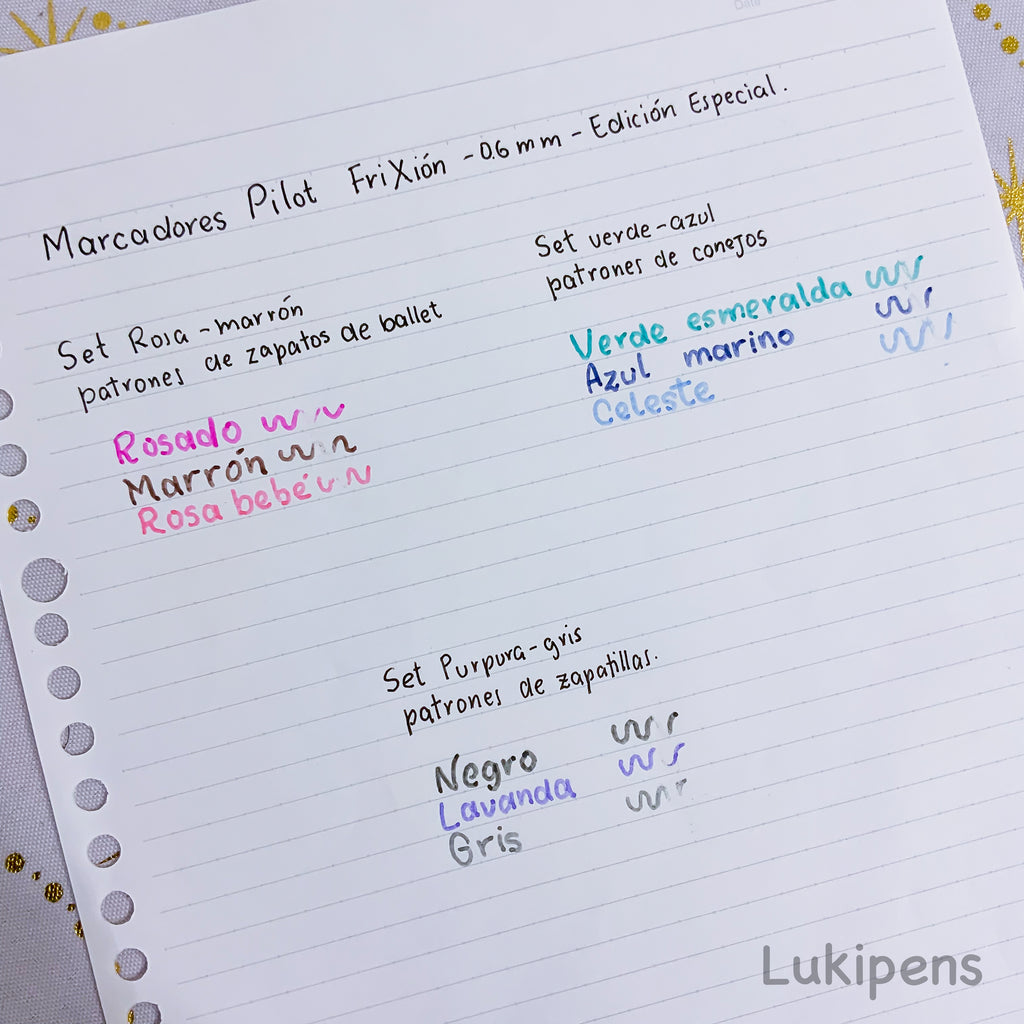 Date
Marcadores Pilot FriXión - 0.6 mm - Edición Especial.
Set Rosa - marrón
patrones de zapatos de ballet
Rosado
Marrón
Rosa bebé
Set verde - azul
patrones de conejos
Verde esmeralda
Azul marino
Celeste
Set Purpura - gris
patrones de zapatillas.
Negro
Lavanda
Gris
Lukipens